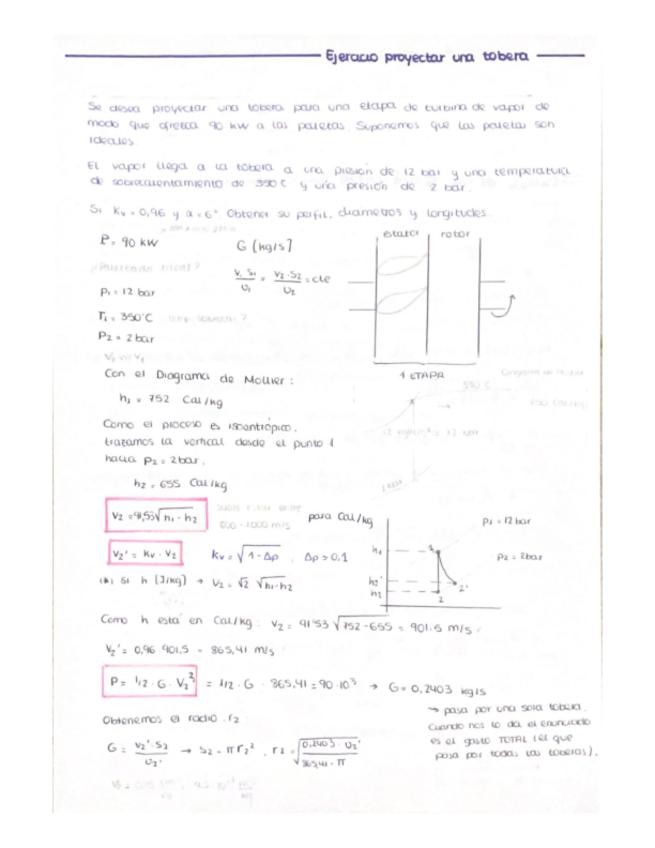 Ejercicio proyectar una tobera
Se desea proyectar una tobera para una etapa de turbina de vapor de
modo que ofrezca 90 kW a las paletas. Suponemos que las paletas son
ideales.
El vapor llega a la tobera a una presión de 12 bar y una temperatura
de sobrecalentamiento de 350°C y una presión de 2 bar.
Si Kv = 0,96 y α = 6° Obtener su perfil, diametros y longitudes.
P = 90 kW G [kg/s]
V1·S1/U1 = V2·S2/U2 = cte
P1 = 12 bar
T1 = 350°C
P2 = 2 bar
estator rotor
1 ETAPA
Con el Diagrama de Mollier:
h1 = 752 Cal/kg
Como el proceso es isoentrópico,
trazamos la vertical desde el punto 1
hacia P2 = 2bar.
h2 = 655 Cal/kg
V2 = 91,53 √h1 - h2 para Cal/kg
V2' = Kv · V2 Kv = √1 - Δp , Δp > 0,1
Si h [J/kg] → V2 = √2 √h1-h2
P1 = 12 bar
P2 = 2bar
h1
h2'
h2
1
2
2'
Como h está en Cal/kg: V2 = 91'53 √752-655 = 901.5 m/s
V2' = 0,96 · 901,5 = 865,41 m/s
P = 1/2 · G · V2'² = 1/2 · G · 865,41² = 90·10³ → G = 0,2403 kg/s
→ pasa por una sola tobera.
Cuando nos lo da el enunciado
es el gasto TOTAL (el que
pasa por todas las toberas).
Obtenemos el radio r2
G = V2'·S2/U2' → S2 = πr2² , r2 = √0,2403 · U2'/865,41 · π